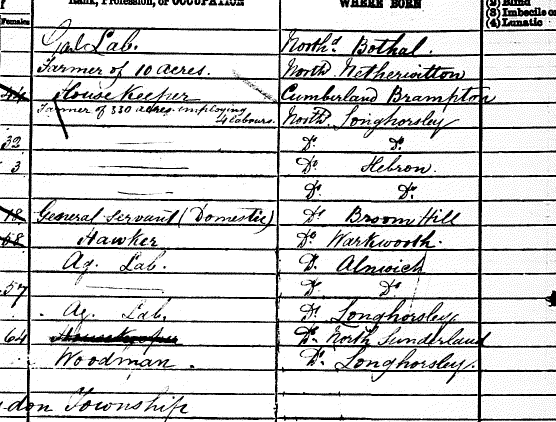 Rank, Profession, or OCCUPATION WHERE BORN (2) Blind
Females (3) Imbecile or
(4) Lunatic
Lab. North'd Bothal
Farmer of 10 acres. North'd Netherwitton
44 House Keeper Cumberland Brampton
Farmer of 330 acres employing North'd Longhorsley
4 labours.
32 Do Do
3 Do Hebron.
Do Do
18 General Servant (Domestic) Do Broom Hill
58 Hawker Do Warkworth.
Ag. Lab. Do Alnwick
57 Do Do
Ag. Lab. Do Longhorsley
64 Housekeeper Do North Sunderland
Woodman. Do Longhorsley.
don Township